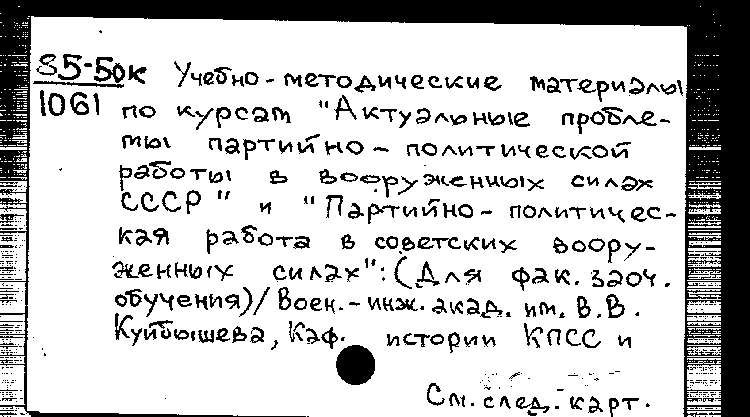 85-50к Учебно-методические материалы
1061 по курсам "Актуальные пробле-
мы партийно-политической
работы в вооруженных силах
СССР" и "Партийно-политичес-
кая работа в советских воору-
женных силах": (Для фак. заоч.
обучения)/Воен.-инж. акад. им. В.В.
Куйбышева, Каф. истории КПСС и
См. след. карт.